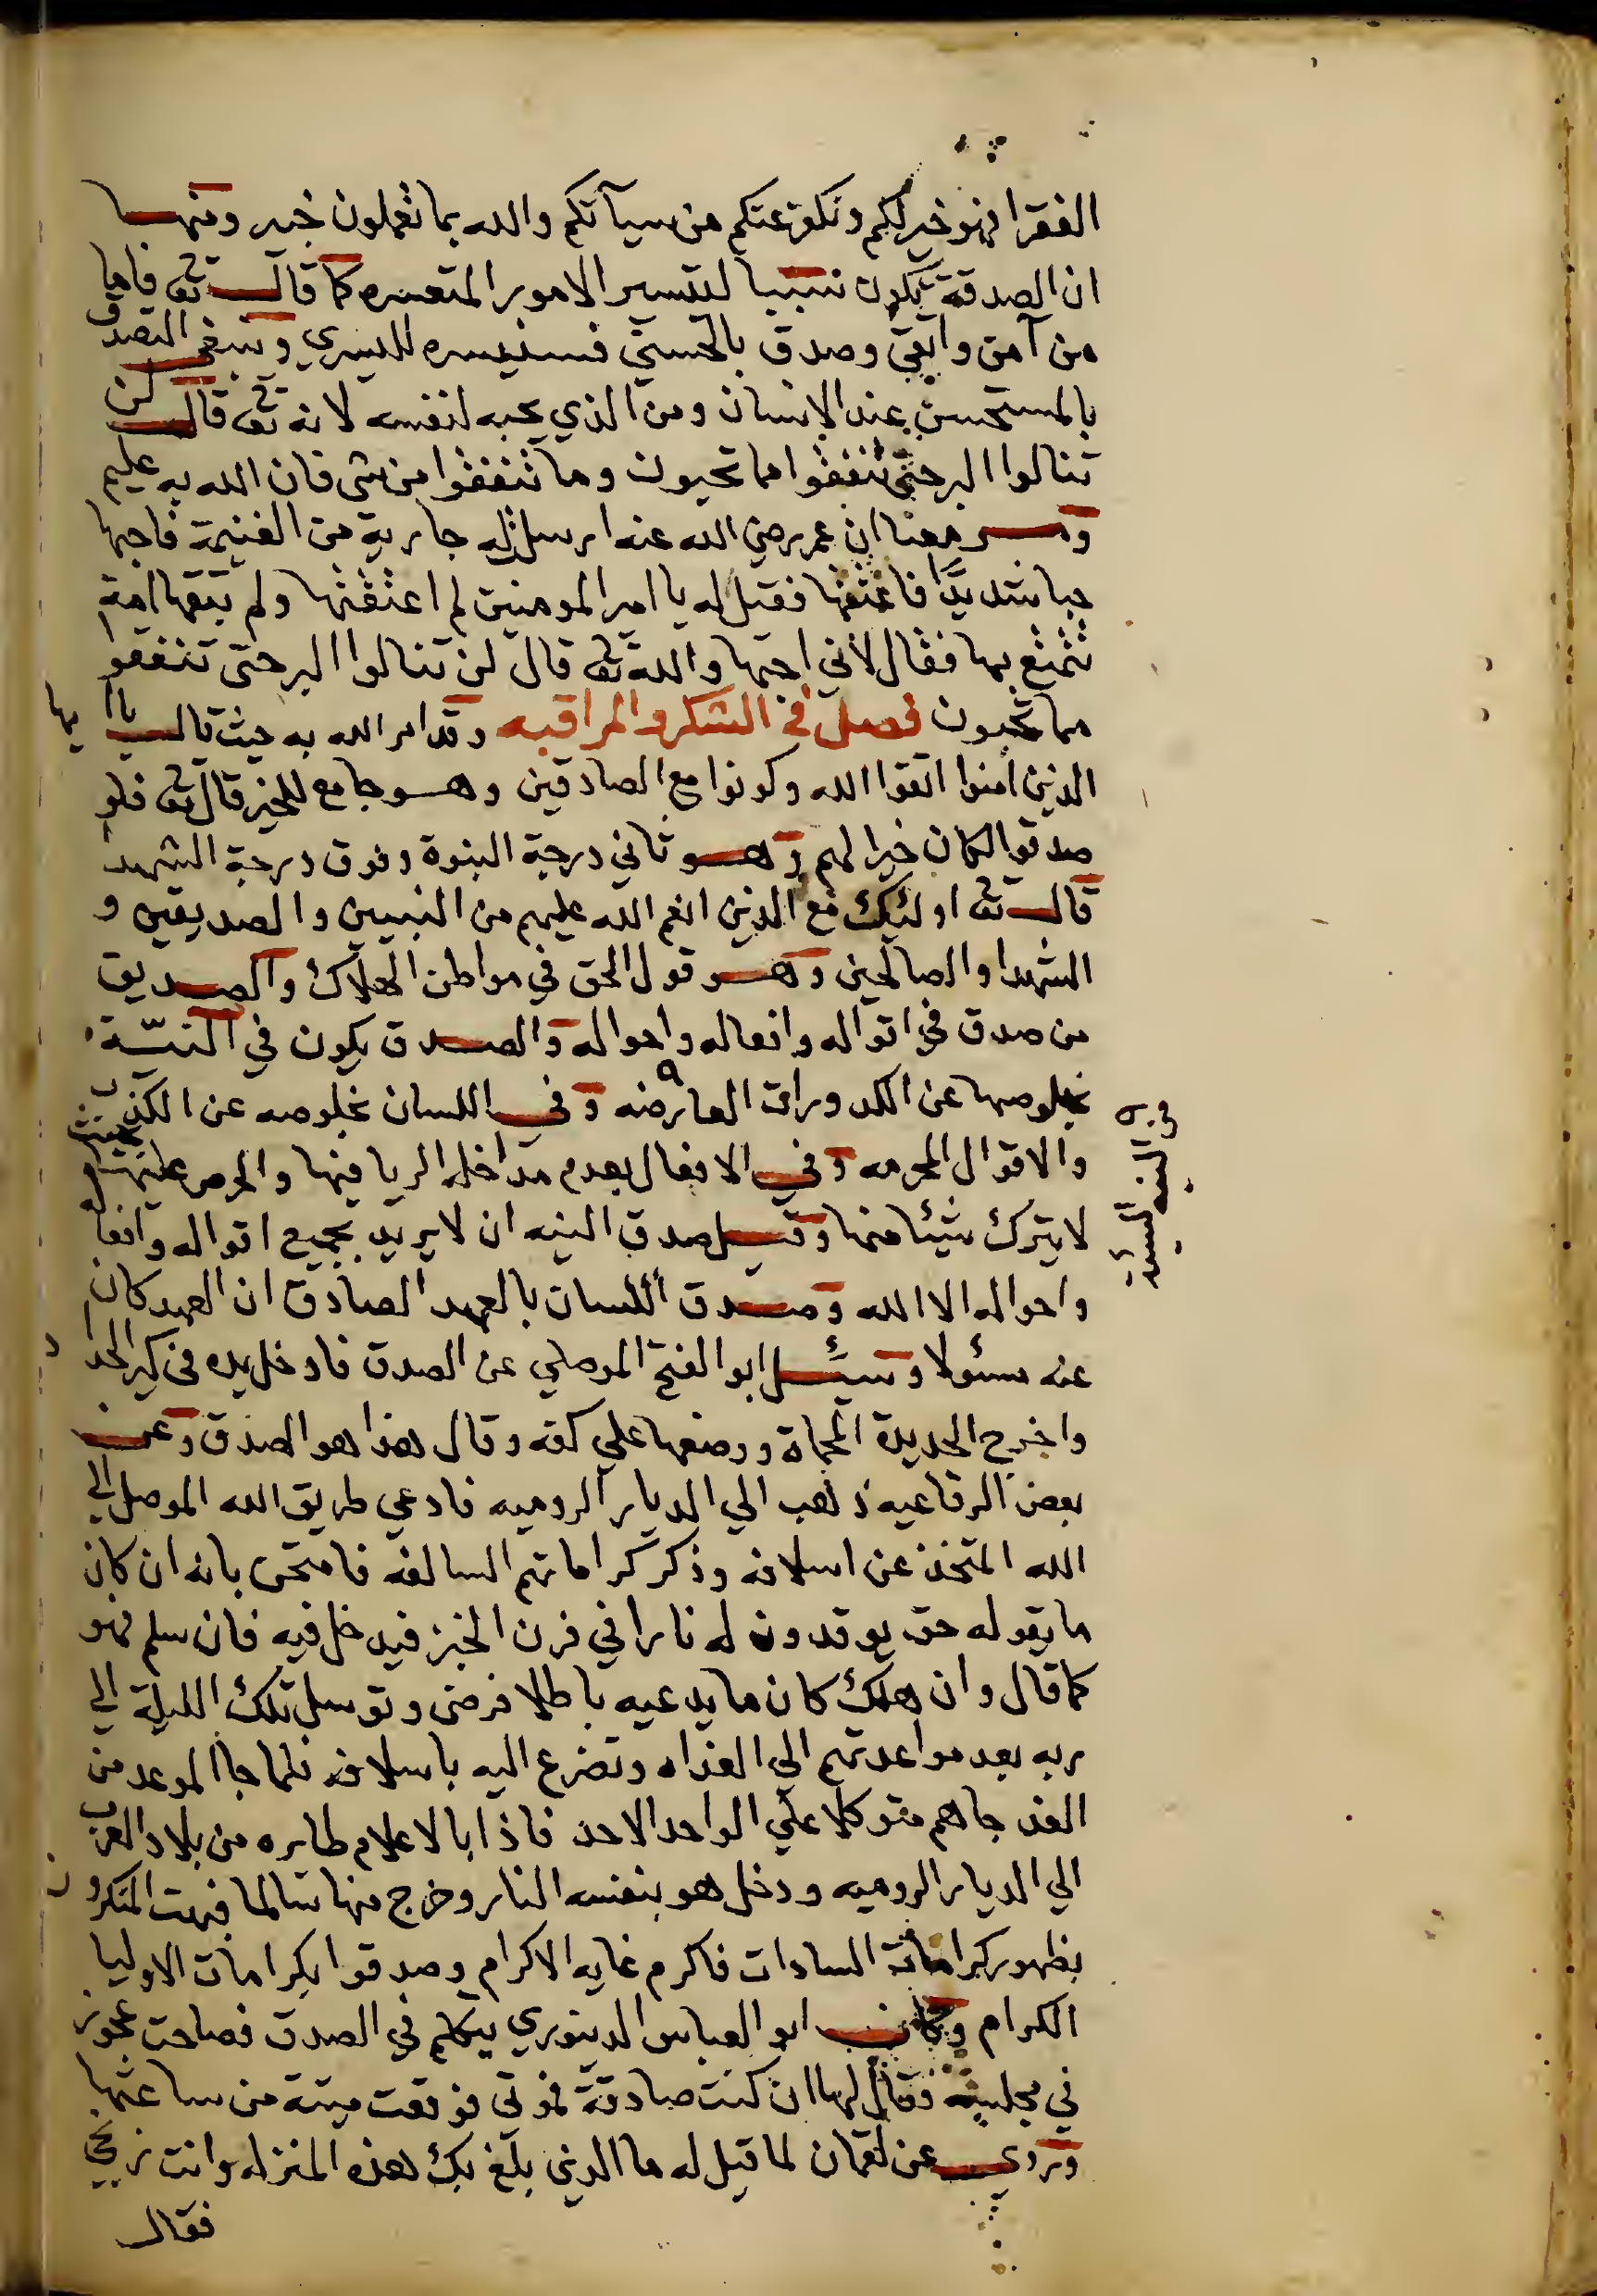 الفقرا فهو خير لكم ونكفر عنكم من سيآتكم والله بما تعملون خبير ومنها
ان الصدقة تكون سببا لتيسير الامور المتعسره كما قال تعٰ فاما
من آمن واتقي وصدق بالحسني فسنيسره لليسري وينبغي التصدق
بالمستحسن عند الانسان ومن الذي يحبه لنفسه لانه تعٰ قال لن
تنالوا البر حتي تنفقوا مما تحبون وما تنفقوا من شي فان الله به عليم
وسمعنا ان عمر رضي الله عنه ارسل له جارية من الغنيمة فاحبها
حبا شديدًا فاعتقها فقيل له يا امير المومنين لم اعتقتها ولم تبقها امة
تتمتع بها فقال لاني احبها والله تعٰ قال لن تنالوا البر حتي تنفقوا
مما تحبون فصل في الشكر والمراقبه وقد امر الله به حيث قال يا ايها
الذين امنوا اتقوا الله وكونوا مع الصادقين وهو جامع للخير قال تعٰ فلو
صدقوا لكان خيرا لهم وهو ثاني درجة النبوة وفوق درجة الشهدا
قال تعٰ اولئك مع الذين انعم الله عليهم من النبيين والصديقين و
الشهدا والصالحين وهو قول الحق في مواطن الهلاك والصديق
من صدق في اقواله وافعاله واحواله والصدق يكون في النيّة
بخلوصها عن الكدورات العارضه وفي اللسان بخلوصه عن الكذب
والاقوال المحرمه وفي الافعال بعدم مداخلة الريا فيها والحرص عليها بحيث
لا يترك شيئا منها وقيل صدق النيه ان لا يريد بجميع اقواله وافعاله
واحواله الا الله وصدق اللسان بالعهد الصادق ان العهد كان
عنه مسئولا وسئل ابو الفتح الموصلي عن الصدق فادخل يده في كير الحداد
واخرج الحديدة المحماة ووضعها علي كفه وقال هذا هو الصدق وعن
بعض الرفاعيه ذهب الي الديار الروميه فادعي طريق الله الموصل الي
الله المتخذ عن اسلافه وذكر كراماتهم السالفه فامتحن بانه ان كان
ما يقوله حق يوقدون له نارا في فرن الخبز فيدخل فيه فان سلم فهو
كما قال وان هلك كان ما يدعيه باطلا فرضي وتوسل تلك الليلة الي
ربه بعد مواعدتهم الي الغداه وتضرع اليه باسلافه فلما جا الموعد من
الغد جاهم متوكلا علي الواحد الاحد فاذا بالاعلام طايره من بلاد العرب
الي الديار الروميه ودخل هو بنفسه النار وخرج منها سالما فبهت المنكرون
بظهور كرامات السادات فاكرم غايه الاكرام وصدقوا بكرامات الاوليا
الكرام وكان ابو العباس الدينوري يتكلم في الصدق فصاحت عجوز
في مجلسه فقال لها ان كنت صادقة فموتي فوقعت ميتة من ساعتها
وروي عن لقمان لما قيل له ما الذي بلغ بك هذه المنزله وانت زنجي
فقال